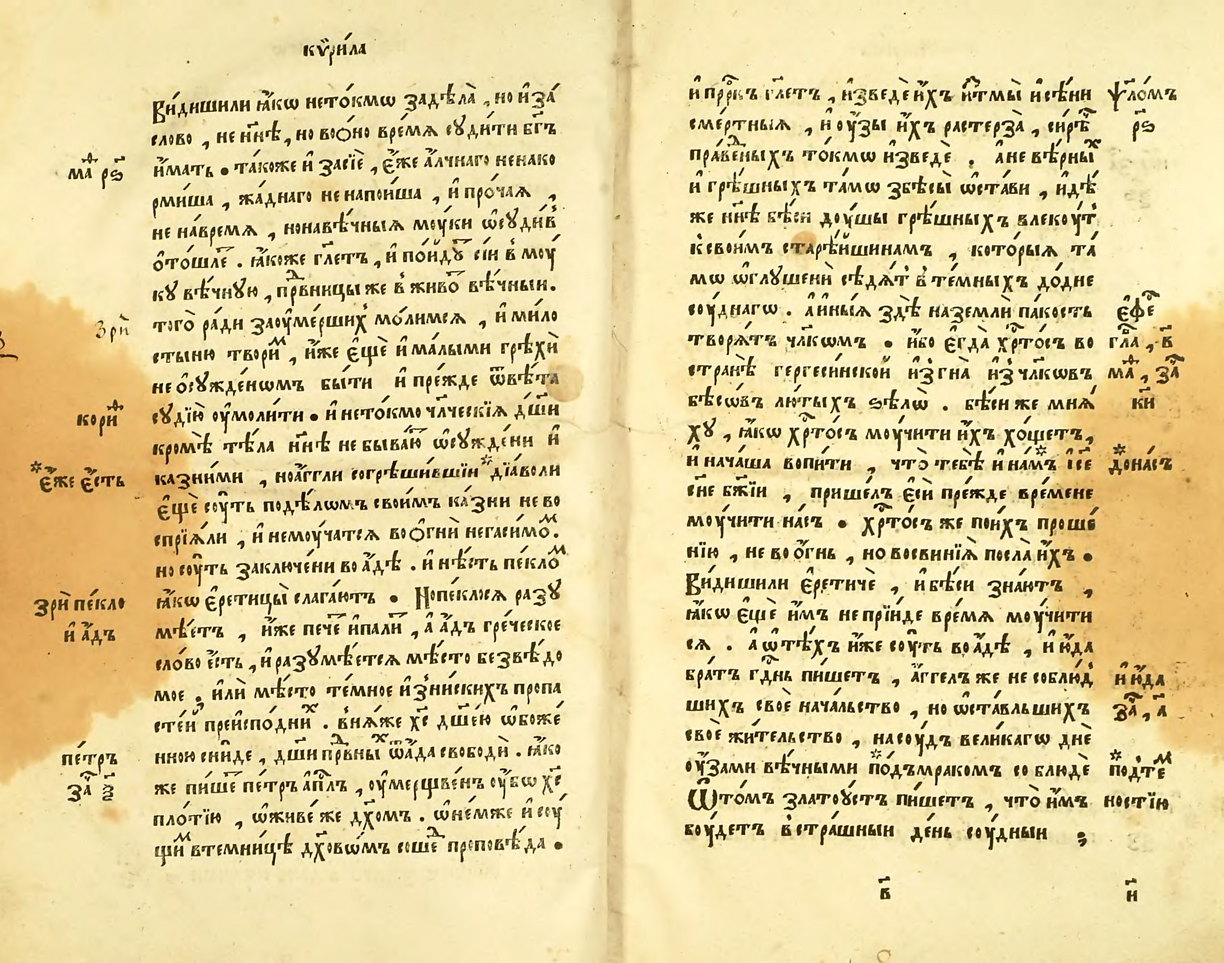 кѷри́ла
Ви́дишили ꙗ҆́кѡ нето́кмѡ задѣ́ла̀ , но и҆за́
сло́во , не нн҃ѣ , но воѻ҆́но вре́мѧ сꙋди́ти бг҃ъ
и҆́мать . та́коже и҆ засїѐ , є҆́же а҆́лчнаго ненако
рми́ша , жа́днаго не напои́ша , и҆ про́чаѧ ,
не на́времѧ , нонавѣ́чныѧ мꙋ́ки ѡ҆сꙋди́в
ѻ҆тошлѐ . ꙗ҆́коже гл҃етъ , и҆ по́идꙋ сі́и в мо́у
кꙋ вѣ́чнꙋю , првⷣницы же в̾ живо вѣ́чныи .
того̀ ра́ди заꙋ҆ме́рших мо́лимсѧ , и҆ ми́ло
стыню твори́м , и҆́же є҆щѐ и҆ ма́лыми грѣхѝ
не ѻ҆сꙋжде́нѡмъ бы́ти и҆ пре́жде ѿвѣ́та
сꙋдїю̀ ꙋ҆моли́ти . и҆ нето́кмо чл҃ческїѧ дш҃и
кромѣ̀ тѣ́ла нн҃ѣ не быва́ю ѡ҆сꙋжде́ни и҆
ка́зними , ноа҆́гг҃ли согрѣши́вшїи * дїа́воли
є҆щѐ сꙋ́ть подѣлѡ́мъ свои́мъ ка́зни не во
спрїѧ́ли , и҆ немꙋ́чатсѧ воѻ҆гнѝ негаси́момⷨ .
но сꙋ́ть заключе́ни во а҆́дѣ . и҆ нѣ́сть пе́клоⷨ
ꙗ҆́кѡ є҆ретицы̀ слага́ютъ . Нопе́клосѧ разꙋ
мѣ́етъ , и҆́же печѐ и҆пали̂ , а҆ а҆́дъ гре́ческое
сло́во є҆́сть , и҆ разꙋмѣ́етсѧ мѣ́сто безвѣ́до
мое , и҆лѝ мѣ́сто те́мное и҆з̾ ни́скихъ пропа
сте́й преиспо́дниⷯ . в̾ ню́же хс҃ дш҃е́ю ѡ҆боже́
нною сни́де , дш҃и првⷣныⷯ ѿа҆́да свободѝ . ꙗ҆́ко
же пи́ше пе́тръ а҆пⷭ҇лъ , ꙋ҆мерщвє́нъ ꙋ҆́бѡ хс҃
пло́тїю , ѡ҆живе́ же дх҃омъ . ѡ҆не́мже и҆ сꙋ́
щиⷨ втемни́цѣ дх҃овѡмъ соше́д проповѣ́да .
маⷴ рѕ҃
зрѝ
кориⷴ
*є҆́же є҆́сть
зрѝ пе́кло
и҆ а҆́дъ
пе́тръ
за҃ ѯ҃
и҆ прⷪ҇ркъ гл҃етъ , и҆зведѐ и҆́хъ и҆́ тмы̀ и҆ сѣ́ни
сме́ртныѧ , и҆ ꙋ҆́зы и҆́хъ растерза̀ , си́рѣ
пра́веныхъ то́кмѡ и҆зведѐ . а҆не вѣ́рныⷯ
и҆ грѣ́шныхъ та́мѡ з̾бѣ́сы ѡ҆ста́ви , и҆дѣ́
же нн҃ѣ бѣ́си дꙋ́шы грѣ́шныхъ влекꙋ́т
к̾ свои́мъ старѣ́йшинамъ , кото́рыѧ та́
мѡ ѡ҆глꙋше́ни сѣдѧ́т в те́мныхъ до́дне
сꙋ́днагѡ . а҆ и҆ны́ѧ здѣ̀ на земли́ па́кость
творѧ́тъ чл҃кѡмъ . и҆́бо є҆гда̀ хрⷭ҇то́съ во
странѣ̀ гергеси́нской и҆згна̀ и҆з̾ чл҃кѡвъ
бѣсѡ́въ лю́тыхъ ѕѣлѡ̀ . бѣ́си же мнѧ́
хꙋ , ꙗ҆́кѡ хрⷭ҇то́съ мꙋ́чити и҆́хъ хо́щетъ ,
и҆ нача́ша вопи́ти , что̀ тебѣ̀ и҆ на́мъ * і҆с҃е
сн҃е бж҃їи , прише́лъ є҆сѝ пре́жде вре́мене
мꙋ́чити на́съ . хрⷭ҇то́съ же пои́хъ проше́
нїю , не во ѻ҆́гнь , но восвинїѧ̀ посла̀ и҆́хъ .
Ви́дишили є҆ре́тичѐ , и҆бѣ́си зна́ютъ ,
ꙗ҆́кѡ є҆щѐ и҆́мъ не прїи́де вре́мѧ мꙋ́чити
сѧ . а҆ ѡ҆тѣ́хъ и҆́же сꙋ́ть во а҆́дѣ , и҆ ю҆́да
бра́тъ гдⷭ҇нь пи́шетъ , а҆́ггелъ же не соблю́д
шихъ своѐ нача́льство , но ѡ҆ста́вльшихъ
своѐ жи́тельство , насꙋ́дъ вели́кагѡ днѐ
ꙋ҆́зами вѣ́чными * по́дъмракомъ со блюдѐ
Ѡ҆ то́мъ златоꙋ́стъ пи́шетъ , что̀ и҆́мъ
бꙋ́детъ в̾ стра́шныи де́нь сꙋ́дныи ;
ѱло́мъ
рѕ҃
є҆фе
гла҃ , в҃
маⷴ , за҃
ки҃
* дона́съ
и҆ ю҆́да
за҃ , а҃
* подте́м
ностїю
в҃
н҃